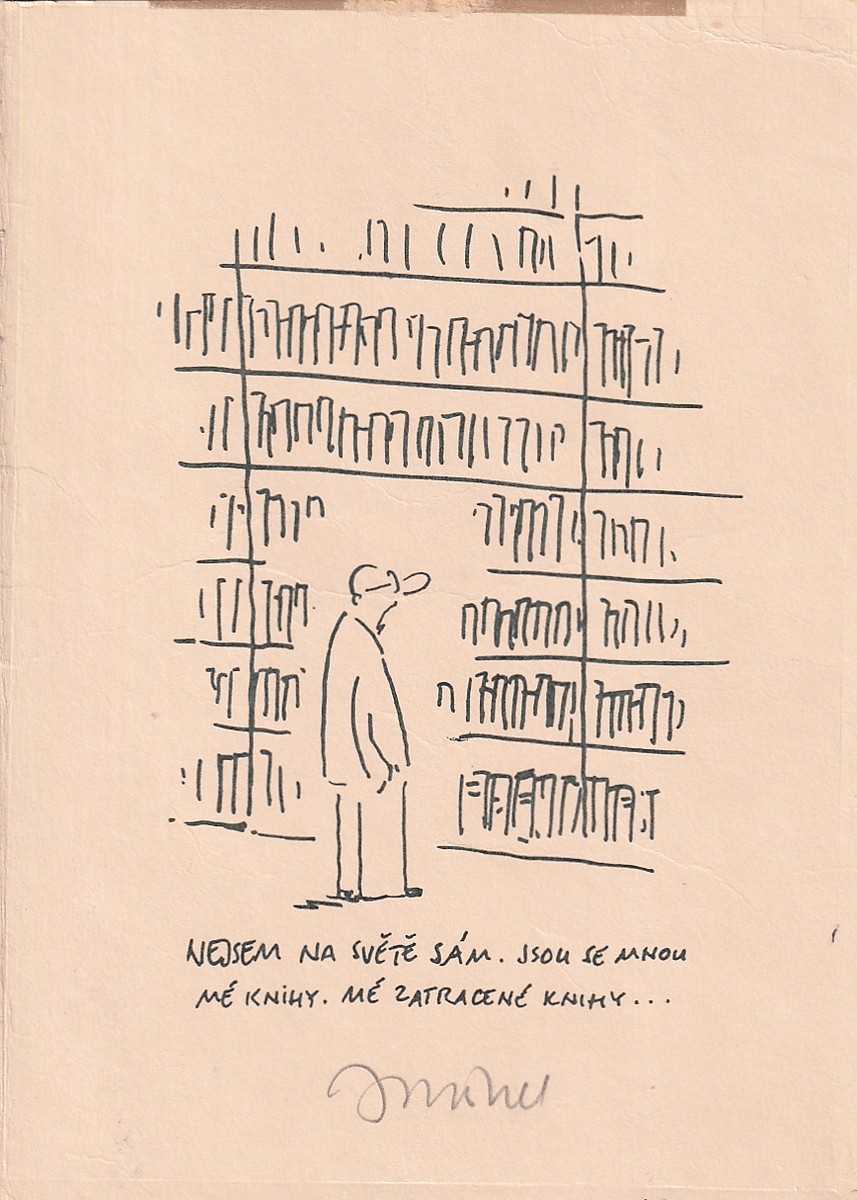 NEJSEM NA SVĚTĚ SÁM. JSOU SE MNOU
MÉ KNIHY. MÉ ZATRACENÉ KNIHY...